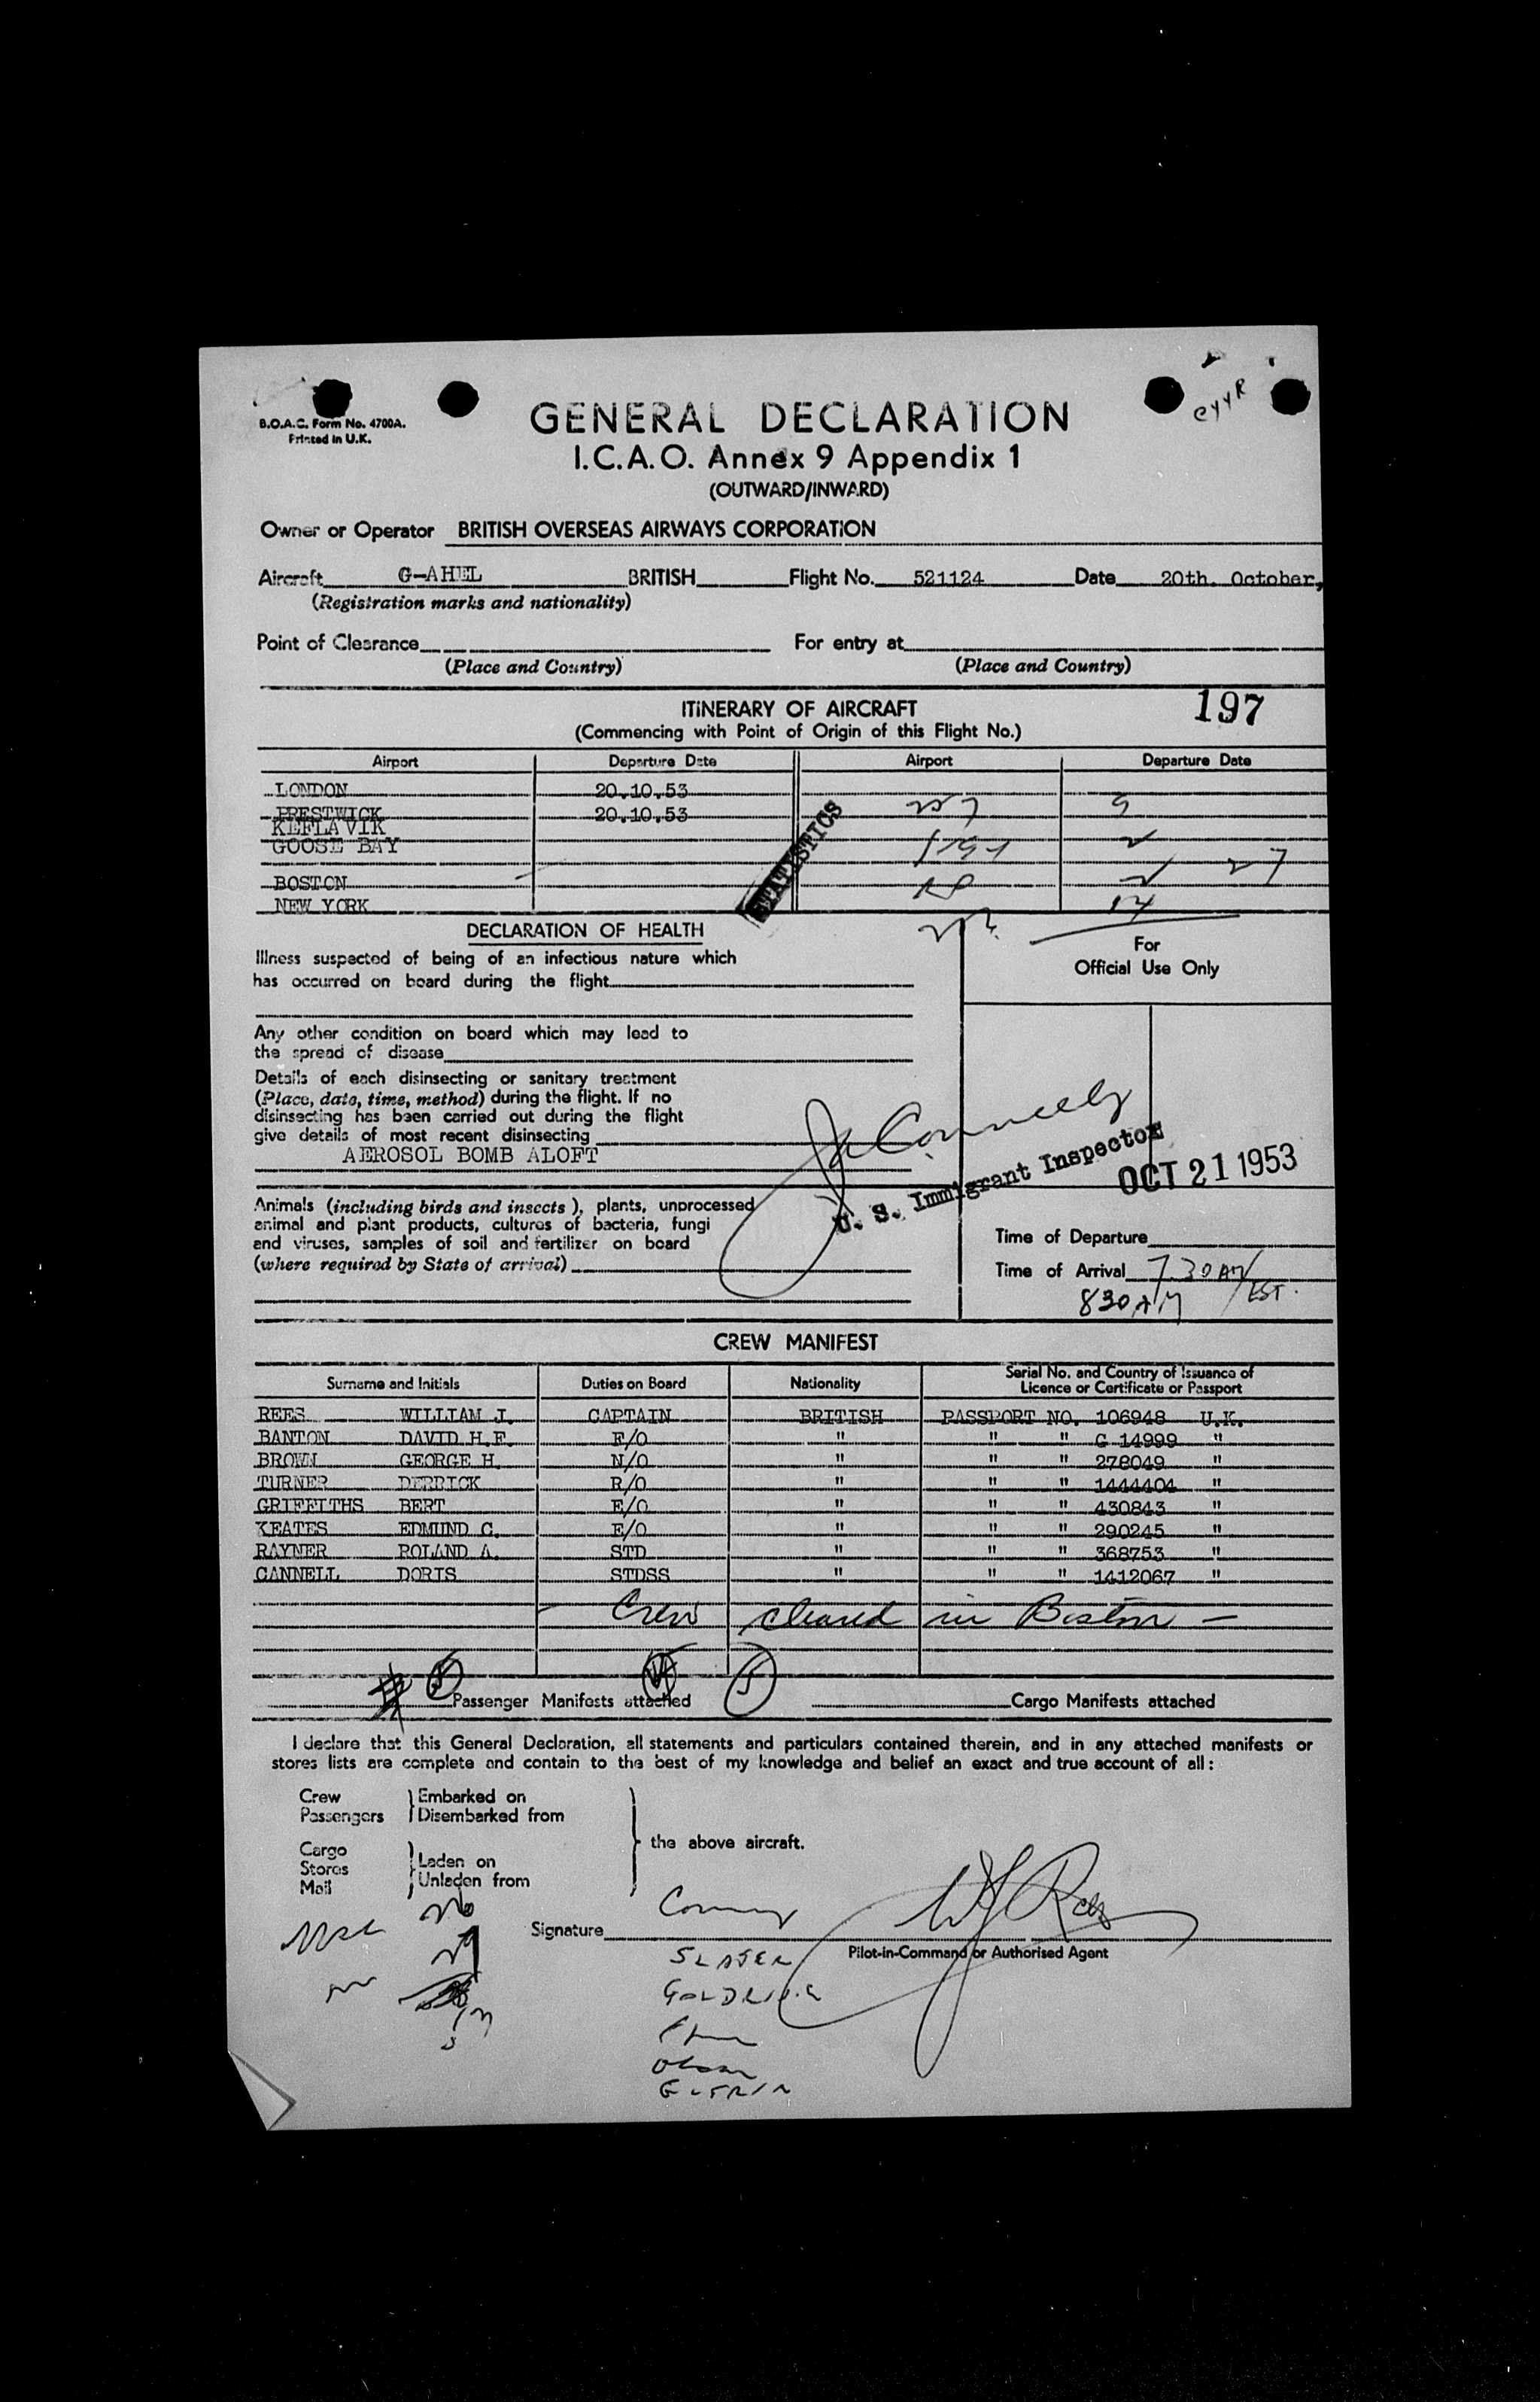 CYYR
B.O.A.C. Form No. 4700A.
Printed in U.K.
GENERAL DECLARATION
I.C.A.O. Annex 9 Appendix 1
(OUTWARD/INWARD)
Owner or Operator BRITISH OVERSEAS AIRWAYS CORPORATION
Aircraft G-AHEL BRITISH Flight No. 521124 Date 20th. October,
(Registration marks and nationality)
Point of Clearance For entry at
(Place and Country) (Place and Country)
ITINERARY OF AIRCRAFT 197
(Commencing with Point of Origin of this Flight No.)
Airport Departure Date Airport Departure Date
LONDON 20.10.53
PRESTWICK 20.10.53
KEFLAVIK
GOOSE BAY
BOSTON
NEW YORK
STATISTICS
DECLARATION OF HEALTH
Illness suspected of being of an infectious nature which
has occurred on board during the flight
For
Official Use Only
Any other condition on board which may lead to
the spread of disease
Details of each disinsecting or sanitary treatment
(Place, date, time, method) during the flight. If no
disinsecting has been carried out during the flight
give details of most recent disinsecting
AEROSOL BOMB ALOFT
U. S. Immigrant Inspector
OCT 21 1953
Animals (including birds and insects), plants, unprocessed
animal and plant products, cultures of bacteria, fungi
and viruses, samples of soil and fertilizer on board
(where required by State of arrival)
Time of Departure
Time of Arrival 7.30 AM
830 AM EST.
CREW MANIFEST
Surname and Initials Duties on Board Nationality Serial No. and Country of Issuance of
Licence or Certificate or Passport
REES WILLIAM J. CAPTAIN BRITISH PASSPORT NO. 106948 U.K.
BANTON DAVID H.F. F/O " " " C 14999 "
BROWN GEORGE H. N/O " " " 278049 "
TURNER DERRICK R/O " " " 1444404 "
GRIFFITHS BERT E/O " " " 430843 "
KEATES EDMUND C. E/O " " " 290245 "
RAYNER ROLAND A. STD " " " 368753 "
CANNELL DORIS STDSS " " " 1412067 "
Crew cleared in Boston —
5
Passenger Manifests attached Cargo Manifests attached
I declare that this General Declaration, all statements and particulars contained therein, and in any attached manifests or
stores lists are complete and contain to the best of my knowledge and belief an exact and true account of all :
Crew Embarked on
Passengers Disembarked from
the above aircraft.
Cargo
Stores Laden on
Mail Unladen from
Signature W J Rees
Pilot-in-Command or Authorised Agent
SLATER